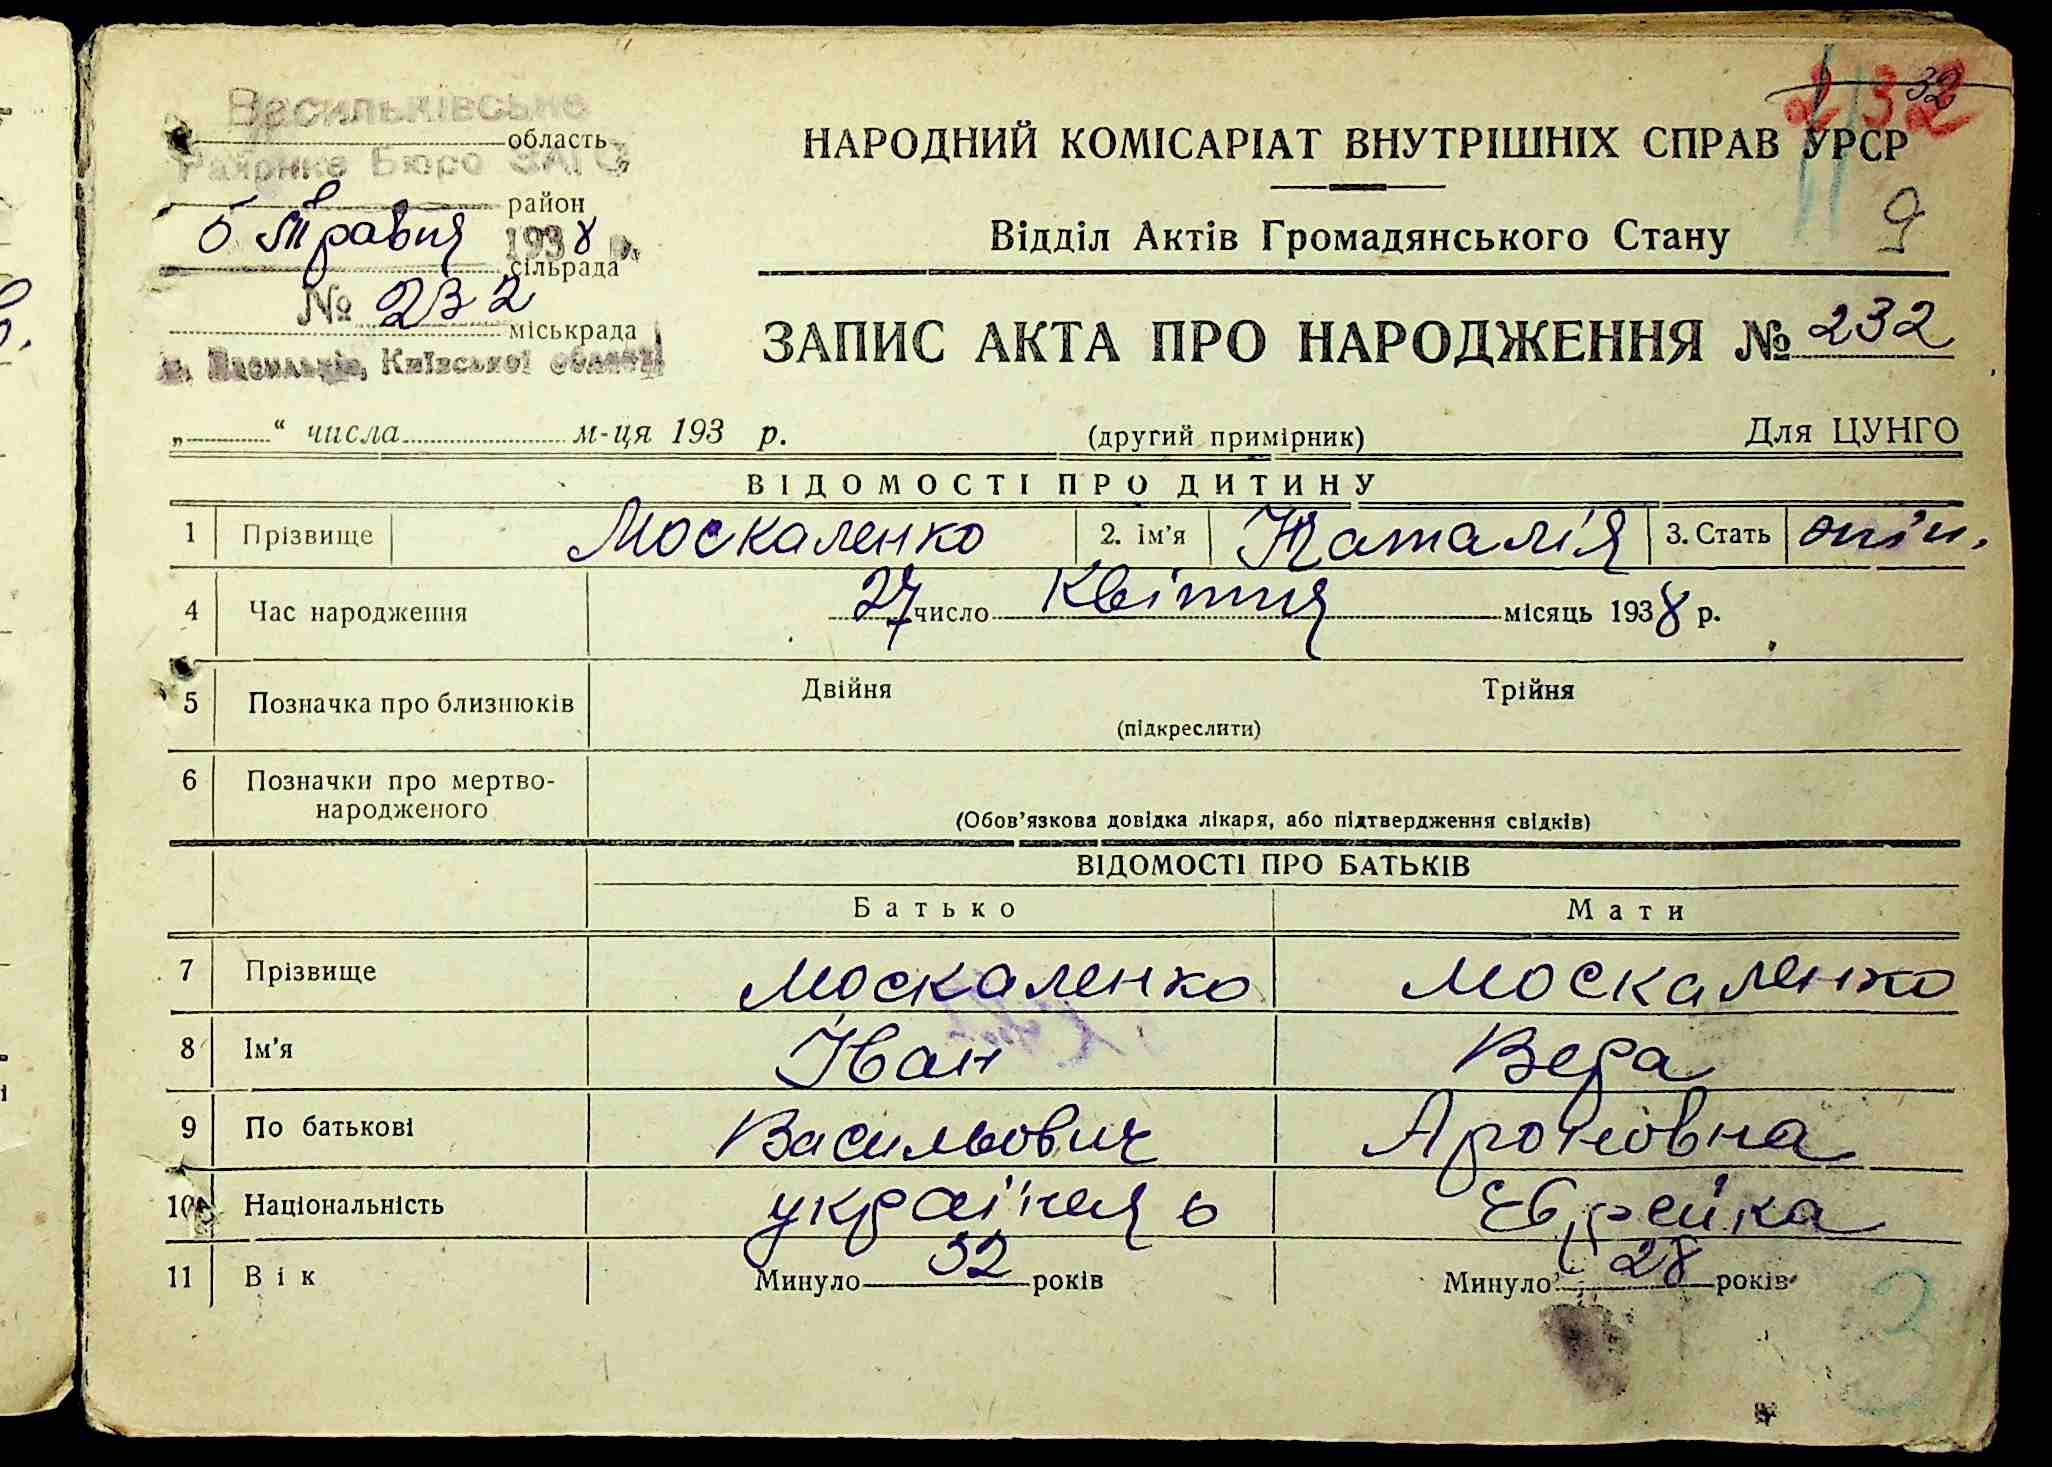 32
232
Васильківське
область
Районне Бюро ЗАГС
район
5 Травня 1938 р.
сільрада
№ 232
міськрада
м. Васильків, Київської області
НАРОДНИЙ КОМІСАРІАТ ВНУТРІШНІХ СПРАВ УРСР
9
Відділ Актів Громадянського Стану
ЗАПИС АКТА ПРО НАРОДЖЕННЯ № 232
„ “ числа м-ця 193 р. (другий примірник) Для ЦУНГО
ВІДОМОСТІ ПРО ДИТИНУ
1 Прізвище Москаленко 2. Ім'я Наталія 3. Стать
4 Час народження 27 число Квітня місяць 1938 р.
5 Позначка про близнюків Двійня Трійня
(підкреслити)
6 Позначки про мертво-
народженого
(Обов'язкова довідка лікаря, або підтвердження свідків)
ВІДОМОСТІ ПРО БАТЬКІВ
Батько Мати
7 Прізвище Москаленко Москаленко
8 Ім'я Іван Вера
9 По батькові Васильович Ароновна
10 Національність українець Еврейка
11 Вік Минуло 32 років Минуло 28 років
3